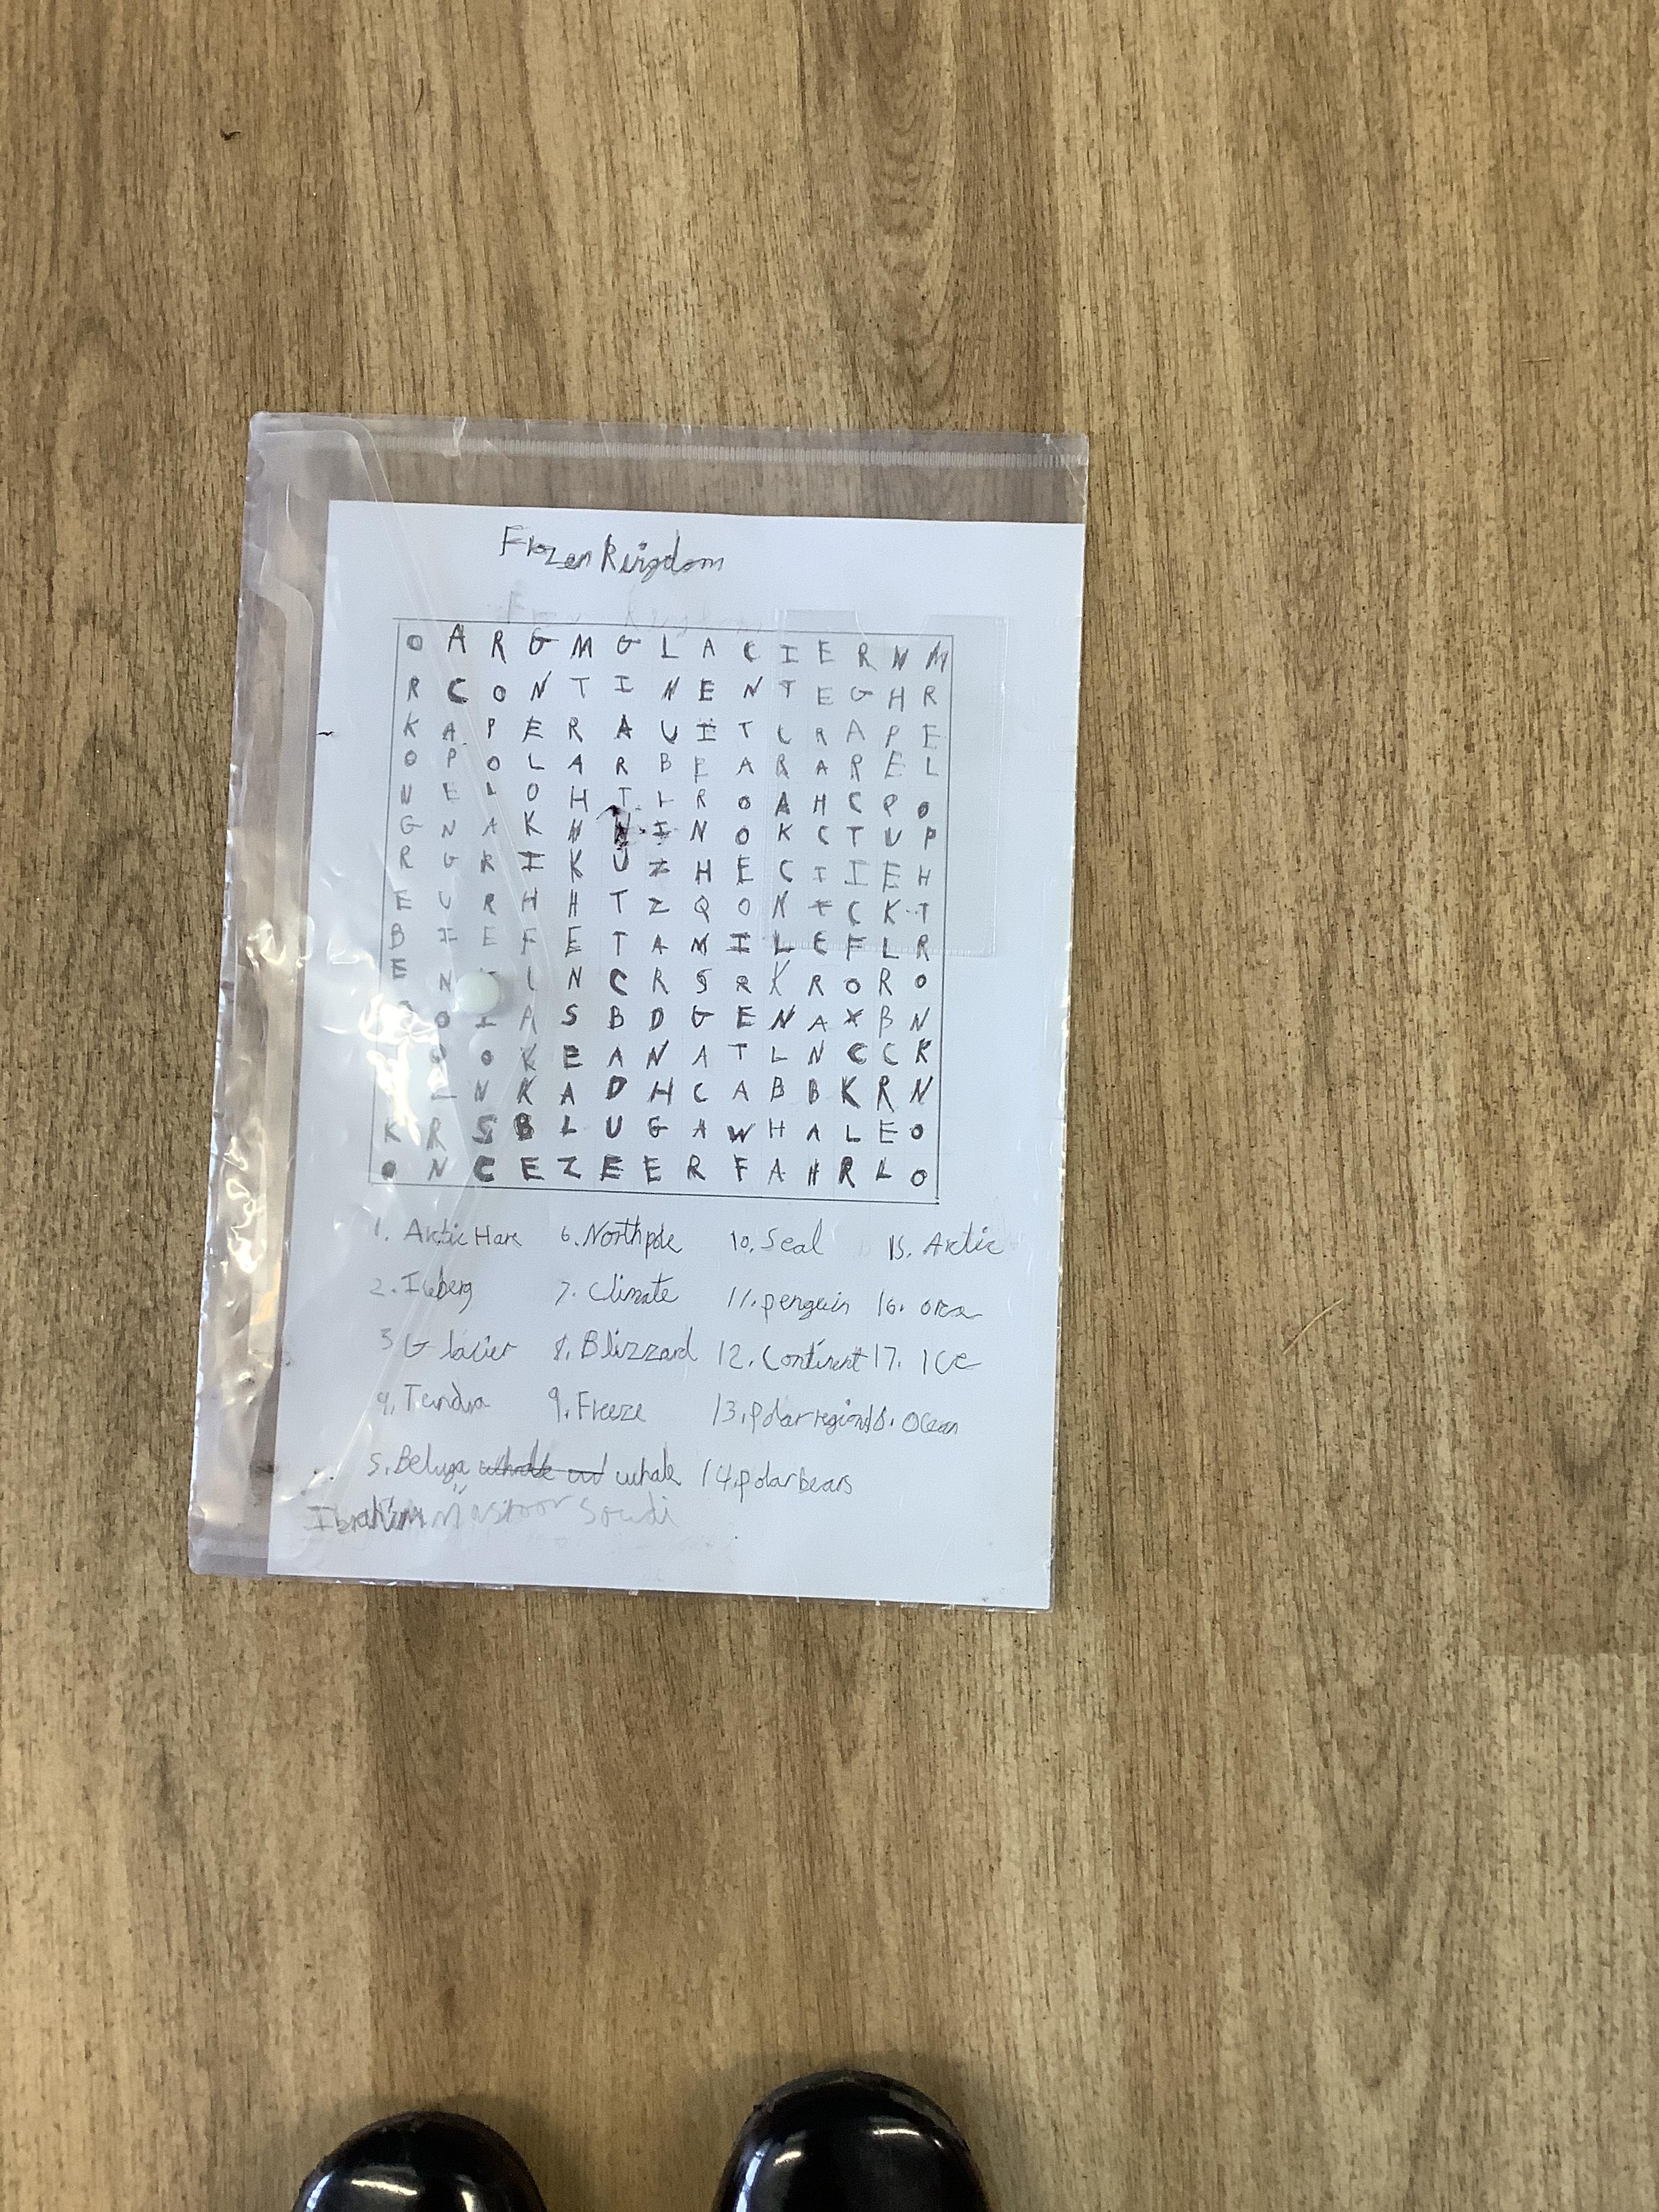 Frozen Kingdom
O A R G M G L A C I E R N M
R C O N T I N E N T E G H R
K A P E R A U I T C R A P E
O P O L A R B E A R A R E L
N E L O H T L R O A H C P O
G N A K N N I N O K C T U P
R G R I K U Z H E C I I E H
E U R H H T Z Q O N T C K T
B I E F E T A M I L C F L R
E N I N C R S R K R O R O
O I A S B D G E N A X B N
O K E A N A T L N C C K
N K A D H C A B B K R N
K R S B L U G A W H A L E O
O N C E Z E E R F A H R L O
1. Arctic Hare 6. North pole 10. Seal 15. Arctic
2. Iceberg 7. Climate 11. penguin 16. orca
3 Glacier 8. Blizzard 12. Continent 17. ICE
9. Tundra 9. Freeze 13. polar region 18. Ocean
5. Beluga whale 14. polar bears
Ibrahim Soudi